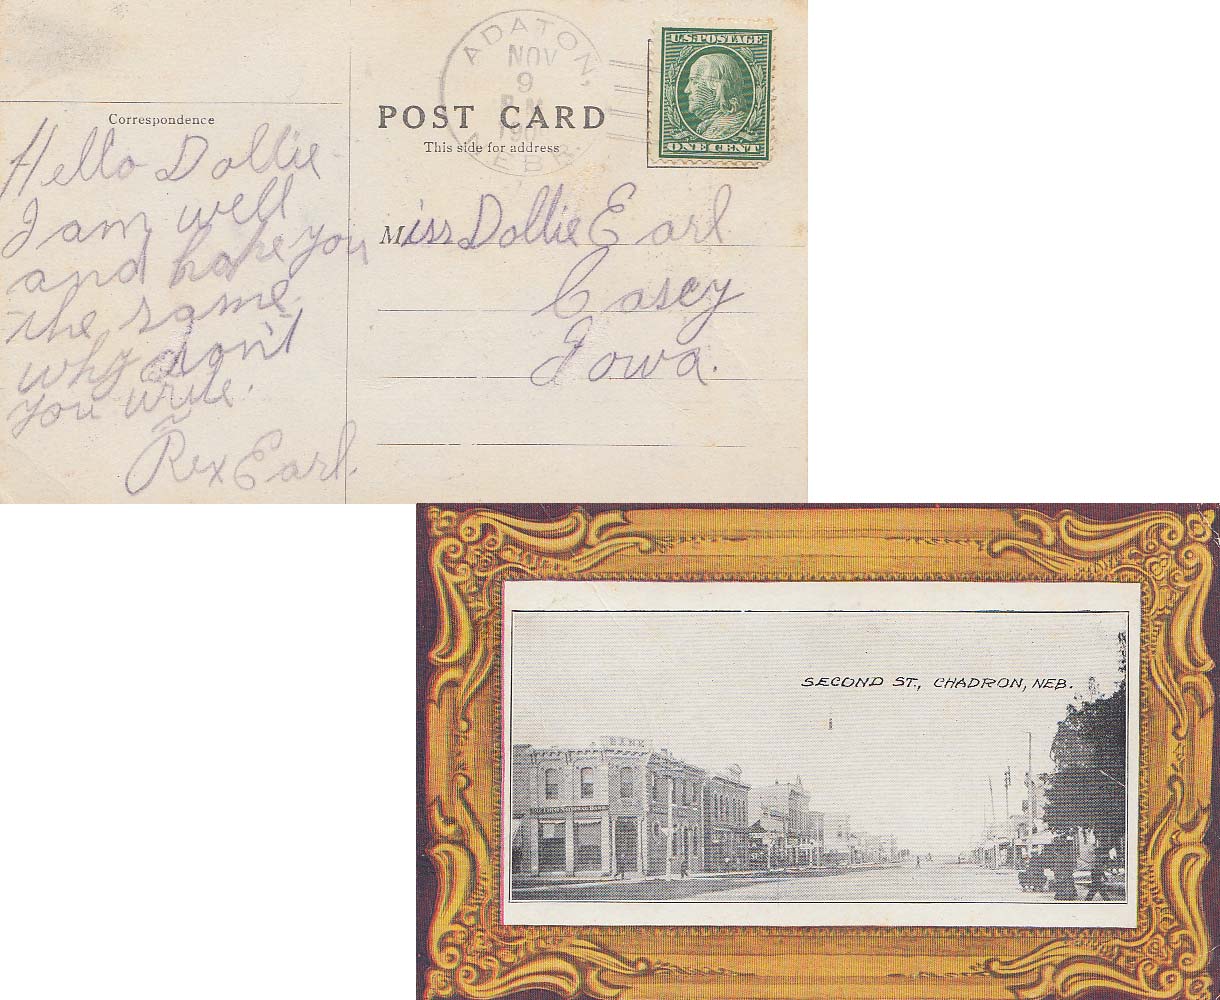 ADATON,
NOV
9
NEBR.
U.S. POSTAGE
ONE CENT
Correspondence
POST CARD
This side for address
Hello Dollie
I am well
and hope you
the same.
why don't
you write.
Rex Earl.
Miss Dollie Earl
Casey
Iowa.
SECOND ST., CHADRON, NEB.
BANK